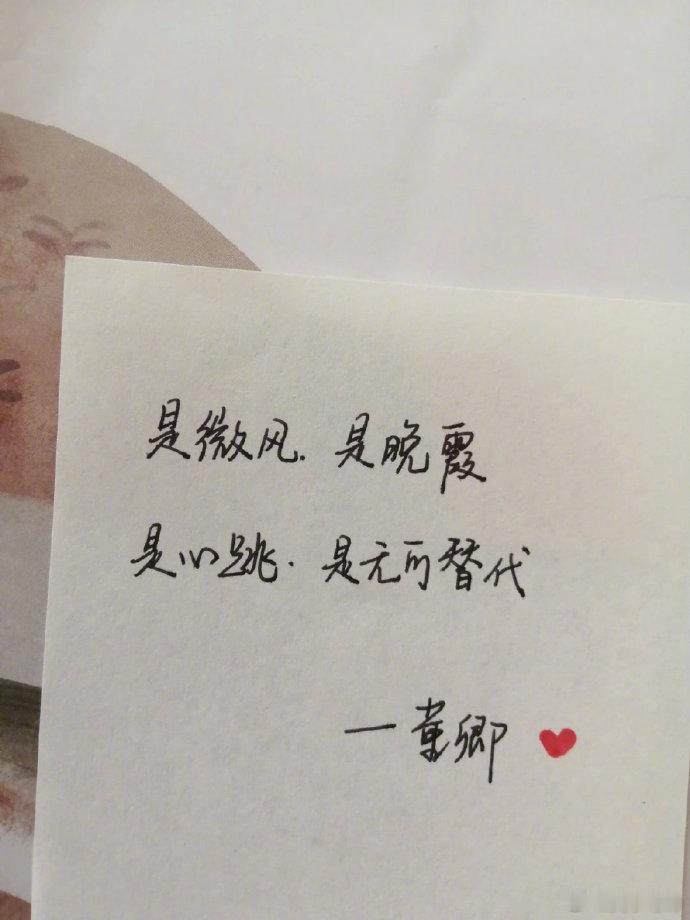 是微风.是晚霞
是心跳.是无可替代
一董卿